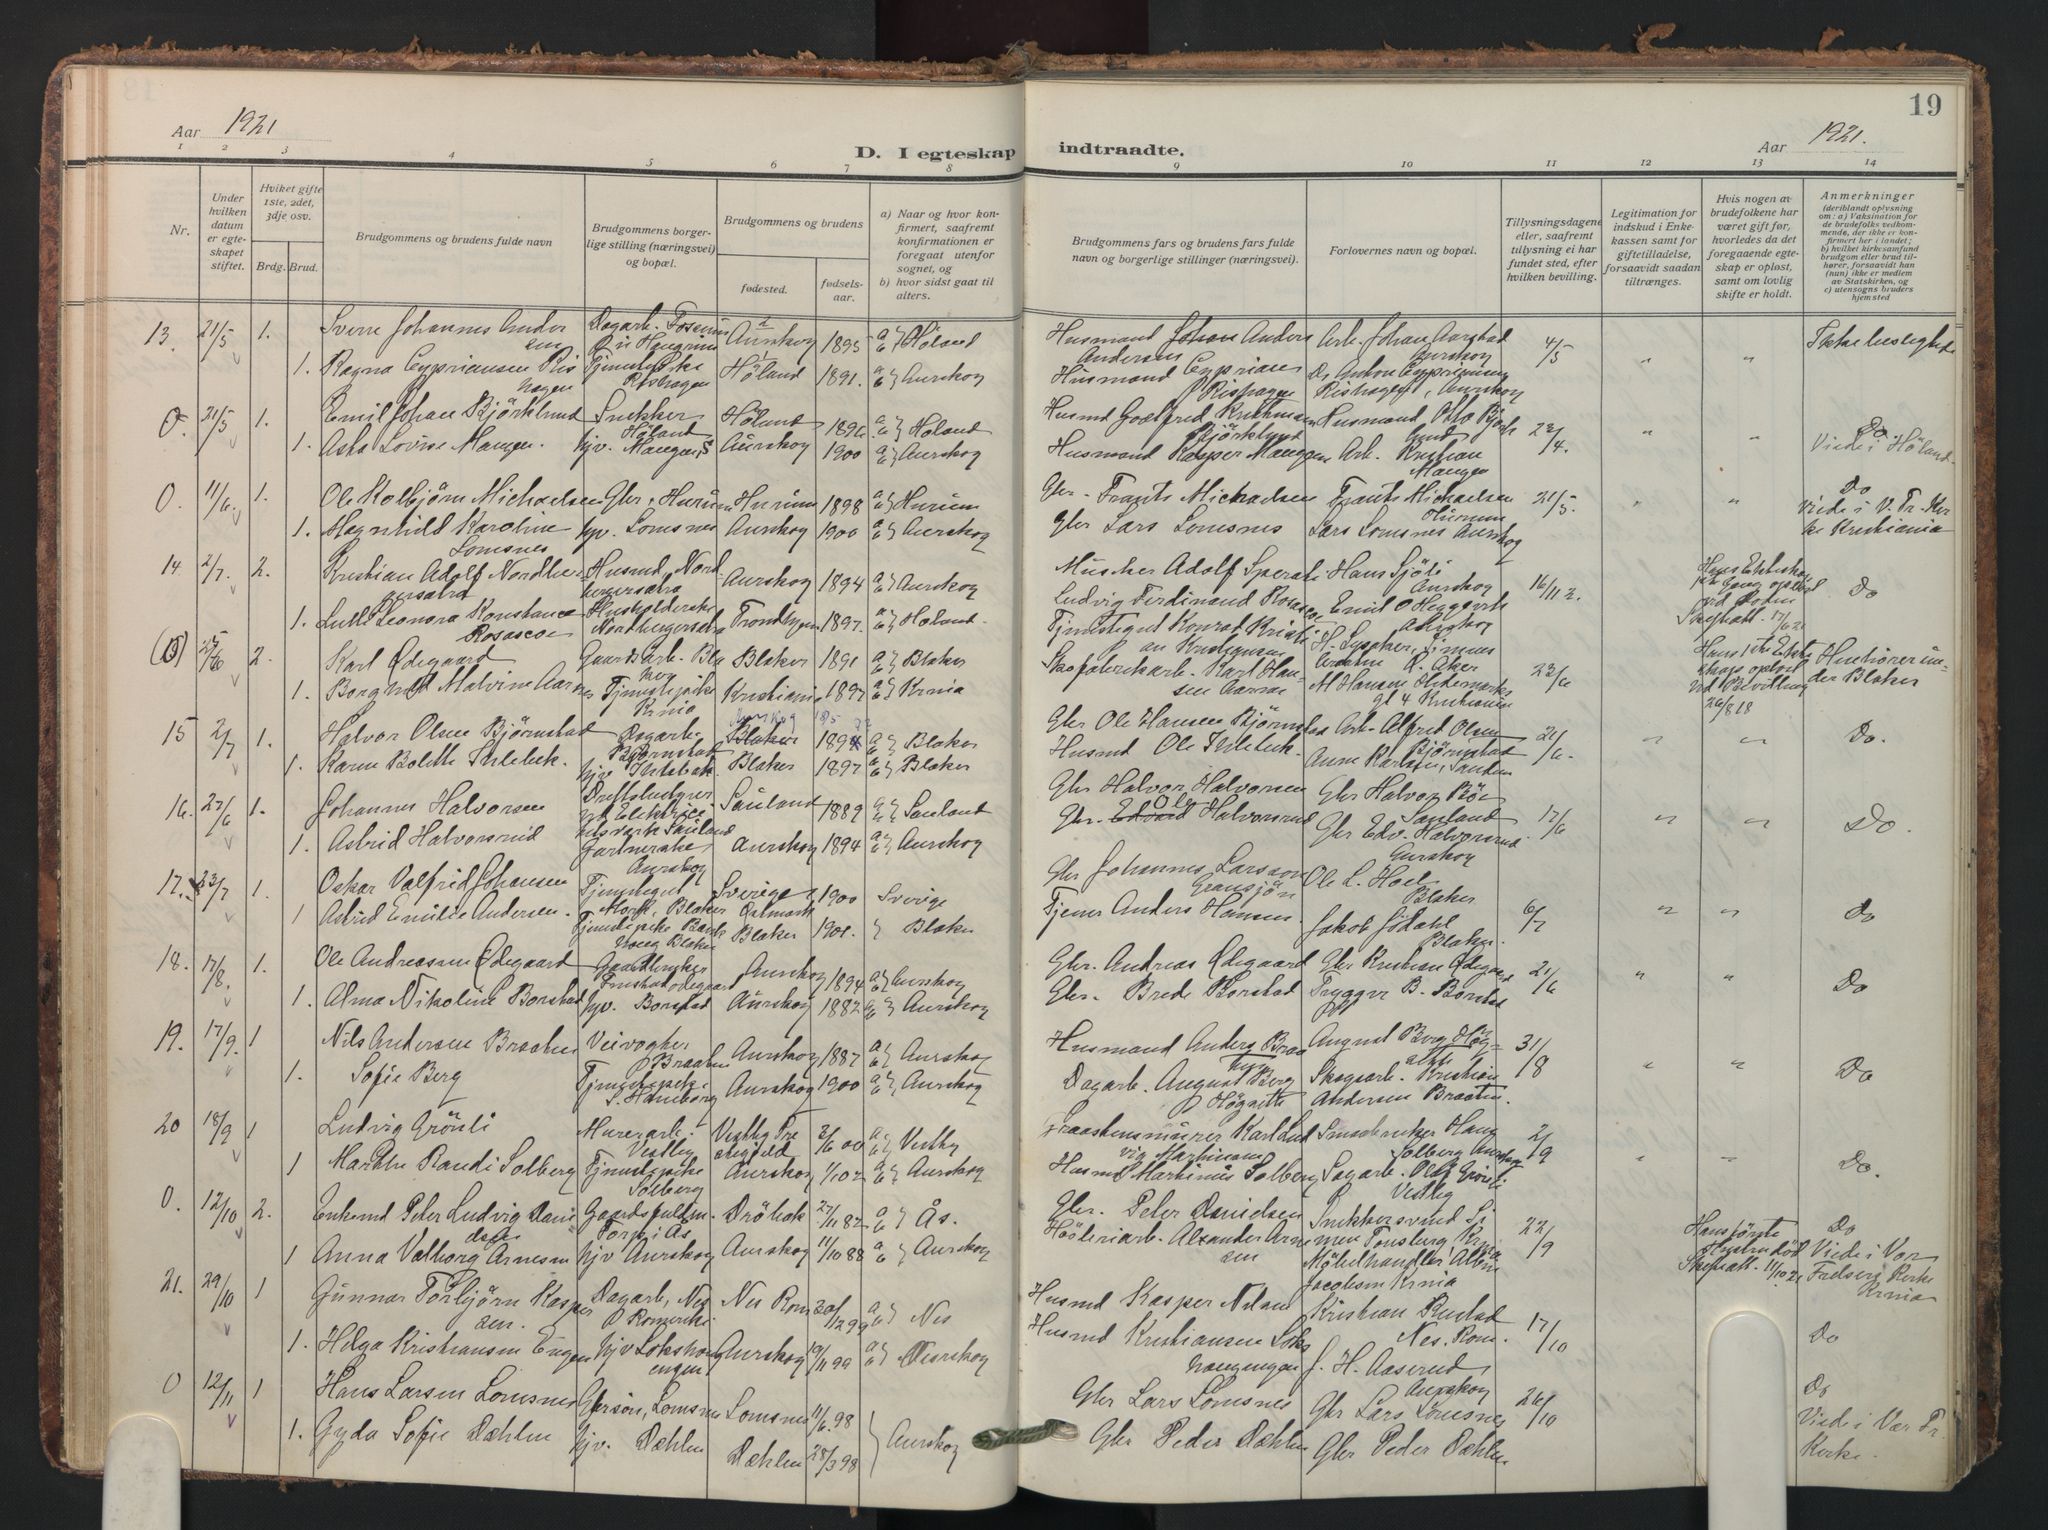 19
Aar 1921
D. I egteskap indtraadte.
Aar 1921.
1 2 3 4 5 6 7 8 9 10 11 12 13 14
Nr.
Under hvilken datum er egteskapet stiftet.
Hviket gifte 1ste, 2det, 3dje osv.
Brdg. Brud.
Brudgommens og brudens fulde navn
Brudgommens borgerlige stilling (næringsvei) og bopæl.
Brudgommens og brudens
fødested.
fødselsaar.
a) Naar og hvor konfirmert, saafremt konfirmationen er foregaat utenfor sognet, og
b) hvor sidst gaat til alters.
Brudgommens fars og brudens fars fulde navn og borgerlige stillinger (næringsvei).
Forlovernes navn og bopæl.
Tillysningsdagene eller, saafremt tillysning ei har fundet sted, efter hvilken bevilling.
Legitimation for indskud i Enkekassen samt for giftetilladelse, forsaavidt saadan tiltrænges.
Hvis nogen av brudefolkene har været gift før, hvorledes da det foregaaende egteskap er opløst, samt om lovlig skifte er holdt.
Anmerkninger
(deriblandt oplysning om: a) Vaksination for de brudefolks vedkommende, der ikke er konfirmert her i landet; b) hvilket kirkesamfund brudgom eller brud tilhører, forsaavidt han (hun) ikke er medlem av Statskirken, og c) utensogns bruders hjemsted
13. 21/5 1. Sverre Johannes Andersen Dagarb. Aurskog 1895 a b } Høland Husmand Johan Anders Andersen Arb. Johan Aarstad Aurskog 4/5 " " Ikke beslegtede
1. Ragna Cypriansen Rishagen Tjenestepike Rishagen Høland 1891. a b } Aurskog Husmand Cyprian Rishagen Anton Cypriansen Rishagen, Aurskog
O. 21/5 1. Emil Johan Bjørklund Snekker Høland Høland 1896. a b } Høland Husmd Gotfred Kristiansen Bjørklund Husmand Otto Bjørklund 23/4. " " Do Viede i Høland
1. Asta Lovise Mangen. hjv. Mangen Aurskog 1900 a b } Aurskog Husmand Kasper Mangen Arb. Kristian Mangen
O. 11/6. 1. Ole Kolbjørn Michaelsen Gbr. Hurum Hurum 1898 a b } Hurum Gbr. Frants Michaelsen Frants Michaelsen Hurum 21/5. " " Do viede i V. Fr. Kirke Kristiania
1. Magnhild Karoline Lomsnes hjv. Lomsnes Aurskog 1900 a b } Aurskog Gbr Lars Lomsnes Lars Lomsnes Aurskog
14. 2/7. 2. Kristian Adolf Nordbergersætra Husmd. Nordbergersætra Aurskog 1894 a b } Aurskog Adolf Hans Sjøli Aurskog 16/11 2. Do
1. Lutti Leonora Konstance Rosascoe Husholderske Nordbergersætra Trondhjem 1897. a b } Høland Ludvig Ferdinand Rosascoe Emil O Heggvik Aurskog
(O) 25/6 2. Karl Ødegaard Gaardsarb. Blaker Blaker 1891 a b } Blaker Tjenestegut Konrad Kristian Kristiansen 23/6 Hans 1ste Ekteskap opløst ved Bevilling 26/8 18 Henhører under Blaker
1. Borghild Malvine Aarnes Tjenestepike Krnia Kristiania 1897 a b } Krnia Skofabrikarb. Karl Hansen Aarnæs M Hansen Kristiania
15 2/7 1. Halvor Olsen Bjørnstad Dagarb. Bjørnstad Blaker Aurskog 1894 a b } Blaker Gbr Ole Hansen Bjørnstad Arb. Alfred Olsen Bjørnstad 21/6. " " Do.
1. Karen Bolette Ihlebæk. hjv Ihlebæk Blaker 1897 a b } Blaker Husmd Ole Ihlebæk. Anne Karlsen, Sanden
16. 27/6 1. Johannes Halvorsen Driftsbestyrer Sauland 1889 a b } Sauland Gbr Halvor Halvorsen Gbr Halvor Bøe Sauland 17/6 " " Do.
1. Astrid Halvorsrud Gartnerske Aurskog Aurskog 1894 a b } Aurskog Gbr. Edvard Ole Halvorsrud Gbr Edv. Halvorsrud Aurskog
17. 23/7 1. Oskar Valfrid Johansen Tjenestegut Mork, Blaker Sverige Østmark 1900 Sverige Gbr Johannes Larsson Gransjøn Ole L. Hoel Blaker 6/7 " " Do
1 Astrid Emilie Andersen. Tjenestepike Blaker Blaker 1901. } Blaker Tjener Anders Hansen. Jakob Jødahl Blaker.
18. 17/8. 1. Ole Andreassen Ødegaard Gaardbruker Ødegaard Aurskog 1894 a b } Aurskog Gbr. Andreas Ødegaard Gbr Kristian Ødegaard 21/6 " " Do
1. Alma Nikoline Borstad hjv. Borstad Aurskog 1882 a b } Aurskog Gbr. Brede Borstad Tryggve B. Borstad
19. 17/9. 1 Nils Andersen Braaten Veivogter Braaten Aurskog 1887 a b } Aurskog Husmand Anders Braaten August Berg Høgsætte 31/8 " " Do
1. Sofie Berg Tjenestepike S. Haneborg Aurskog 1900 a b } Aurskog Dagarb. August Berg Høgsætte Skogsarb. Kristian Andersen Braaten.
20 18/9 1 Ludvig Grönli Murerarb. Vestby Vestby 3/6 00 a b } Vestby Graastensmurer Karl Ludvig Martinsen Smaabruker Hans Solberg Aurskog 2/9 " " Do.
1 Marthe Randi Solberg Tjenestepike Solberg Aurskog 1/10 02 a b } Aurskog Husmd Martinus Solberg Sagarb. Olaf Grönli Vestby
O. 12/10 2. Enkemd Peter Ludvig Danielsen Gaardsfuldm. Torp i Ås Drøbak 27/11 82 a b } Ås. Gbr. Peter Danielsen Snekkersvend Simen Tonsberg Krnia 22/9 Hans første Hustru død Skifteatt. 11/10 21 Do Viede i Vor Frelsers Kirke Krnia
1 Anna Valborg Arnesen hjv Aurskog Aurskog 11/10 88 a b } Aurskog Høvleriarb. Alexander Arnesen Møbelhandler Albin Jacobsen Krnia
21. 29/10 1 Gunnar Torbjørn Kaspersen. Dagarb. Nes Romerike Nes Rom 20/12 99 a b } Nes Husmd Kasper Nilsen Kristian Rustad Nes. Rom. 17/10 Do
1. Helga Kristiansen Engen hjv Lokshaugengen Aurskog 19/11 99 a b } Aurskog Husmd Kristiansen Lokshaugengen J. H. Aaserud Aurskog
O 12/11 1 Hans Larsen Lomsnes Gbrsøn, Lomsnes Lomsnes 11/6. 98 Gbr Lars Lomsnes Gbr Lars Lomsnes 26/10 Do Viede i Vor Fr. Kirke.
1. Gyda Sofie Dæhlen hjv. Dæhlen Dæhlen 28/3 98 } Aurskog Gbr Peder Dæhlen Gbr Peder Dæhlen